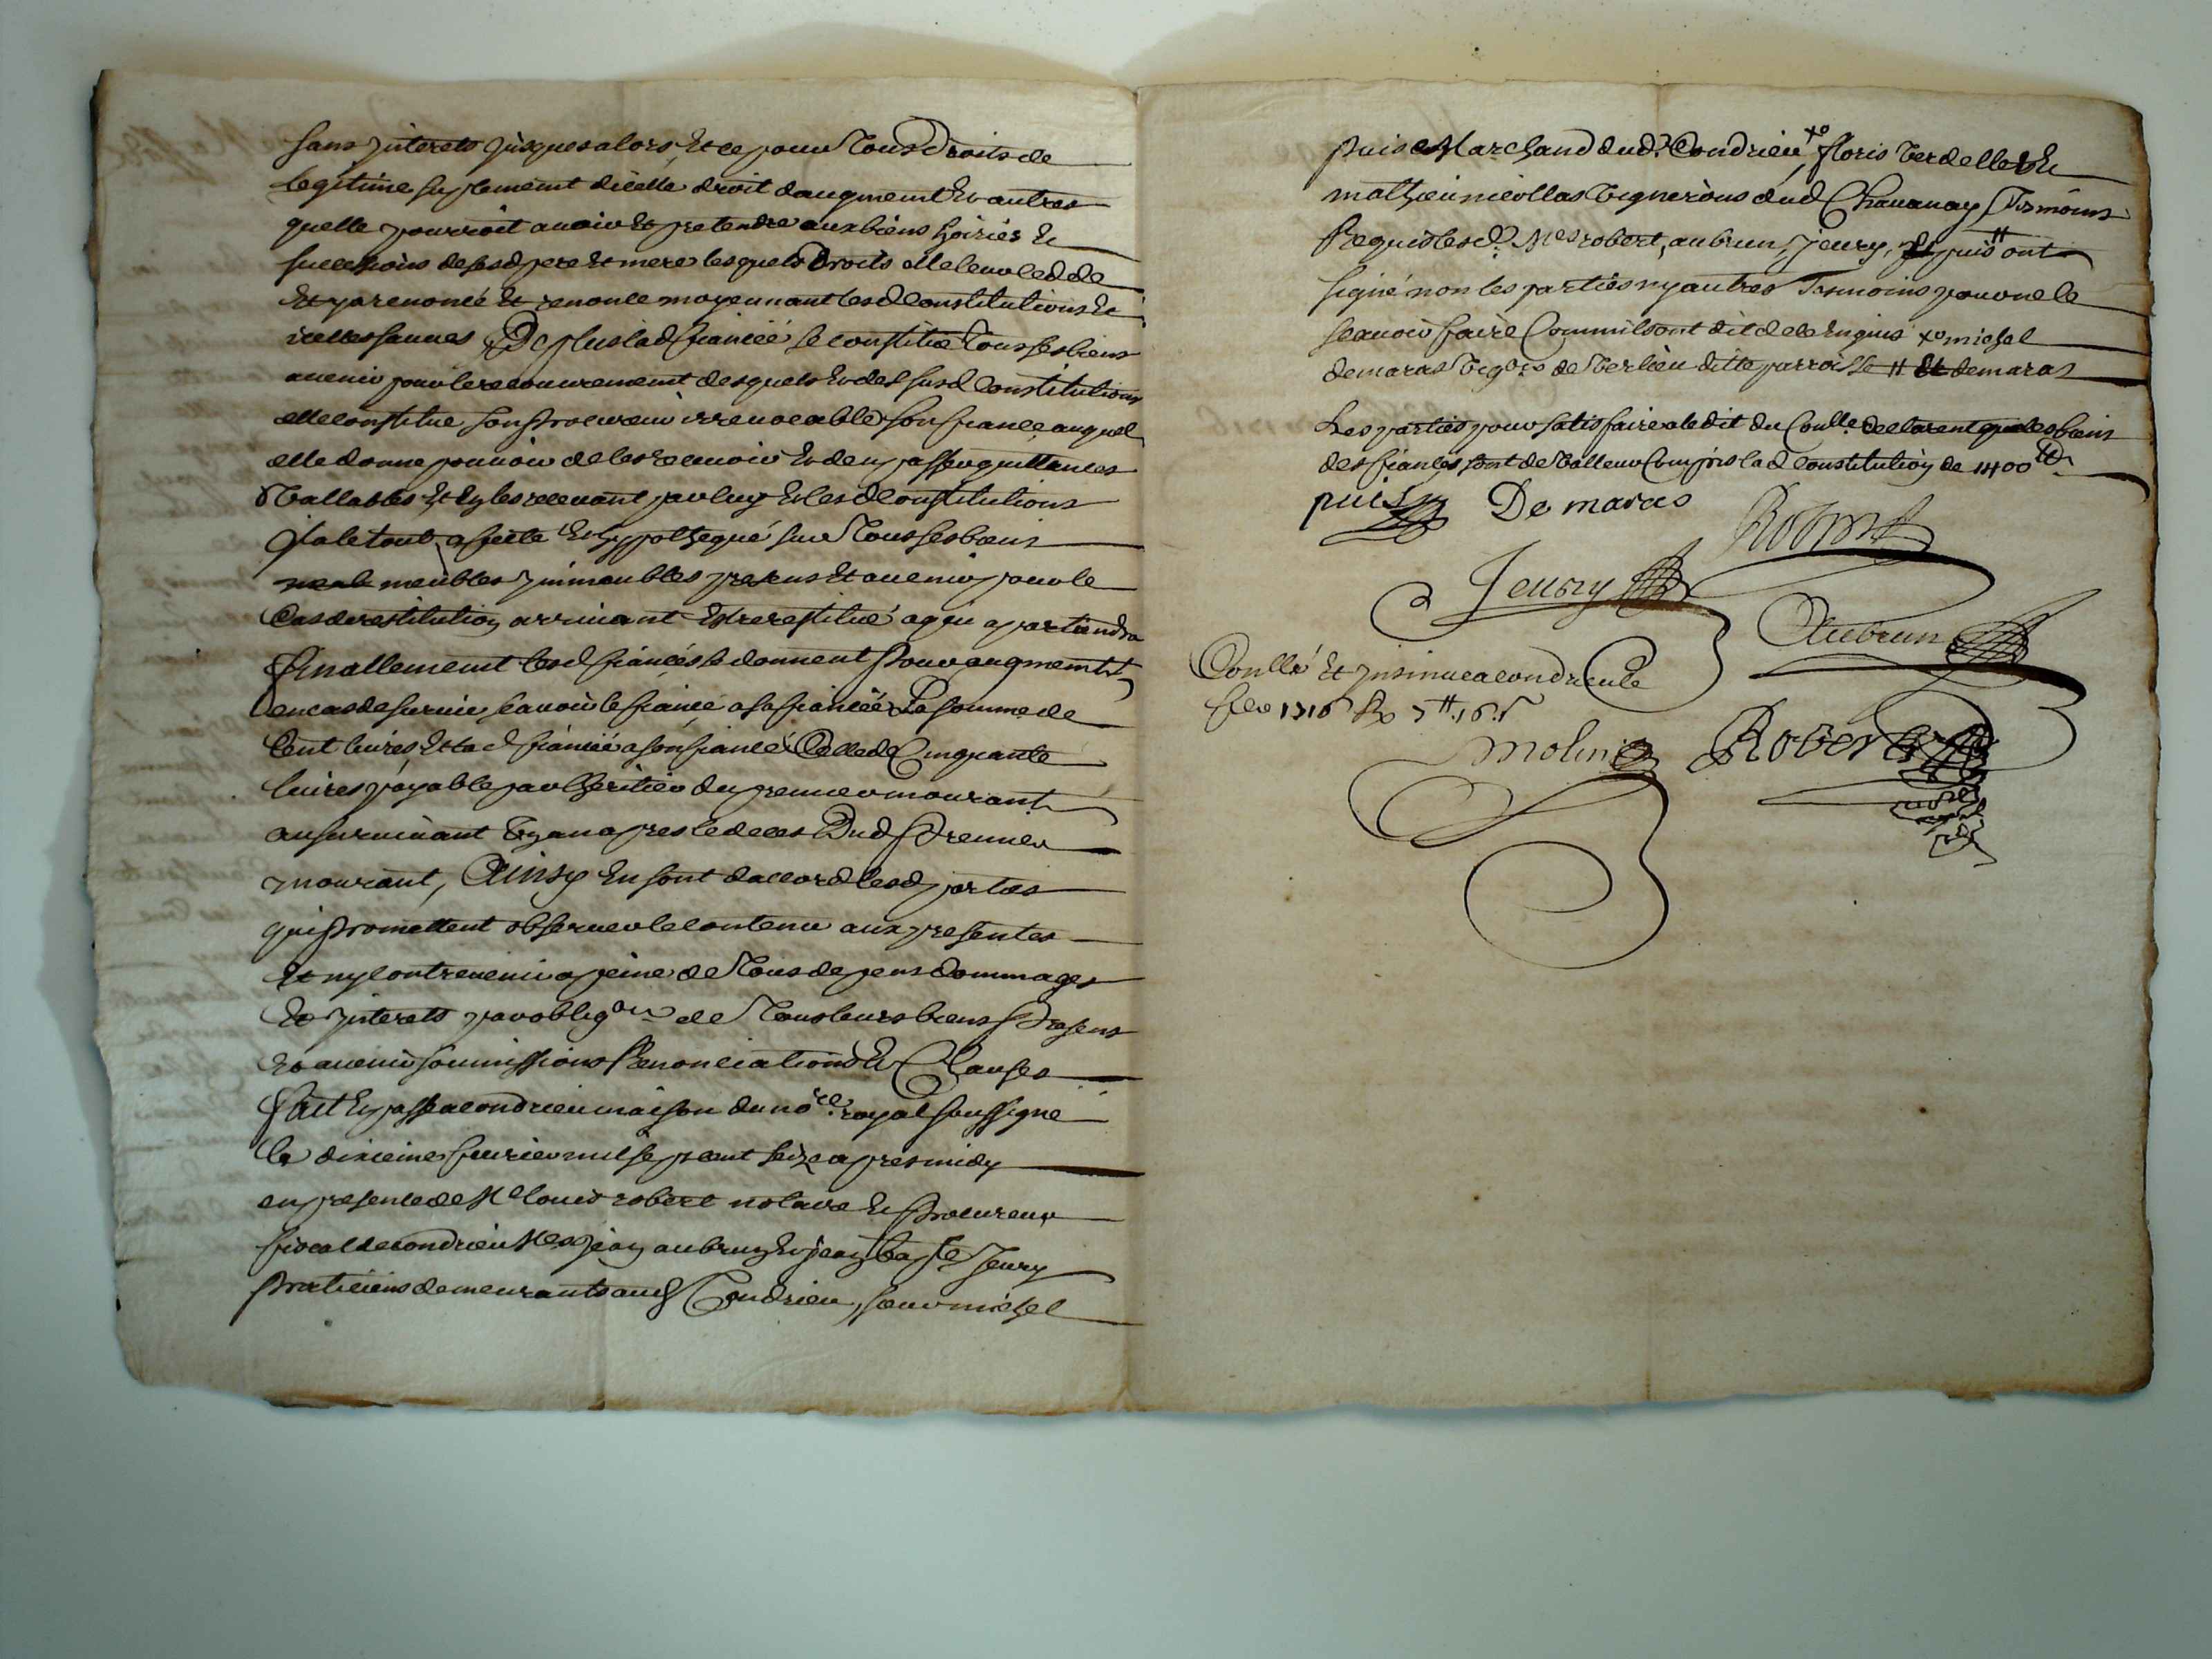 sans jnterets jusques alors, Et ce pour Tous Droits de
legitime suplement dicelle droit daugment Et autres
quelle pourroit avoir Et pretendre aux biens hoiries Et
successions de sesd pere Et mere lesquels Droits elle leur cedde
Et y a renoncé Et renonce moyennant lesd Constitutions Et
icelles sauves De plus lad fiancée se constitue Tous ses biens
avenir pour le recouvrement desquels Et des susd Constitutions
elle constitue son procureur irrevocable son fiancé auquel
elle donne pouvoir de les recevoir Et den passer quittances
Vallables Et En les recevant par luy Et lesd Constitutions
Jl a le tout affecté Et hypothequé sur Tous ses biens
meubles jmmeubles presens Et avenir pour le
Cas de restitution arrivant Estre restitué a qui apartiendra
finallement lesd fiancés se donnent pour augment
en cas de survie scavoir le fiancé a sa fiancée La somme de
Cent livres, Et lad fiancée a son fiancé Celle de Cinquante
livres payable par lheritier du premier mourant
au survivant Un an apres le deces Dud Premier
mourant, Ainsy En sont daccord lesd parties
qui promettent observer le contenu aux presentes
Et ny contrevenir a peine de Tous depens Dommages
Et jnterets par obligon de Tous leurs biens Presens
Et avenir soumissions Renonciations Et Clauses
fait Et passé a condrieu maison du nore royal soussigné
le dixieme feuvrier mil sept cent seize apres midy
en presence de Me Louis robert notaire Et procureur
fiscal de condrieu Mes jean aubrun Et jean bapte Jeury
praticiens demeurants aud Condrieu, sieur michel
puis Marchand dud. Condrieu xo floris Verdelle Et
mathieu nicollas Vignerons dud Chavanay Tesmoins
Requis lesd. Mes robert, aubrun, jeury, Et puis # ont
signé non les parties ny autres Tesmoins pour ne le
scavoir faire Comme ils ont dit de ce Enquis xo michel
demaras Vigon de Verlieu ditte parroisse # Et demaras
Les parties pour satisfaire a ledit du Conlle declarent que les biens
des fiancés sont de Valleur Compris lad Constitution de 1400 tt
puis De maras Robert
Jeury
Aubrun
Conllé Et jnsinué a condrieu le
fer 1716 Rx 7tt.16.s
molin Robert